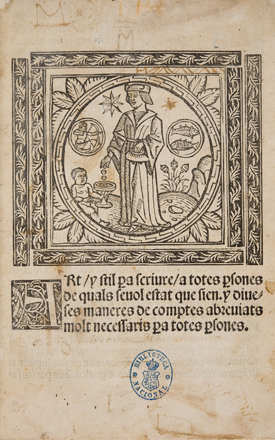 ARt / y stil pa scriure / a totes psones
de quals seuol estat que sien. y diuer-
ses maneres de comptes abreuiats
molt necessaris pa totes psones.
BIBLIOTECA
NACIONAL